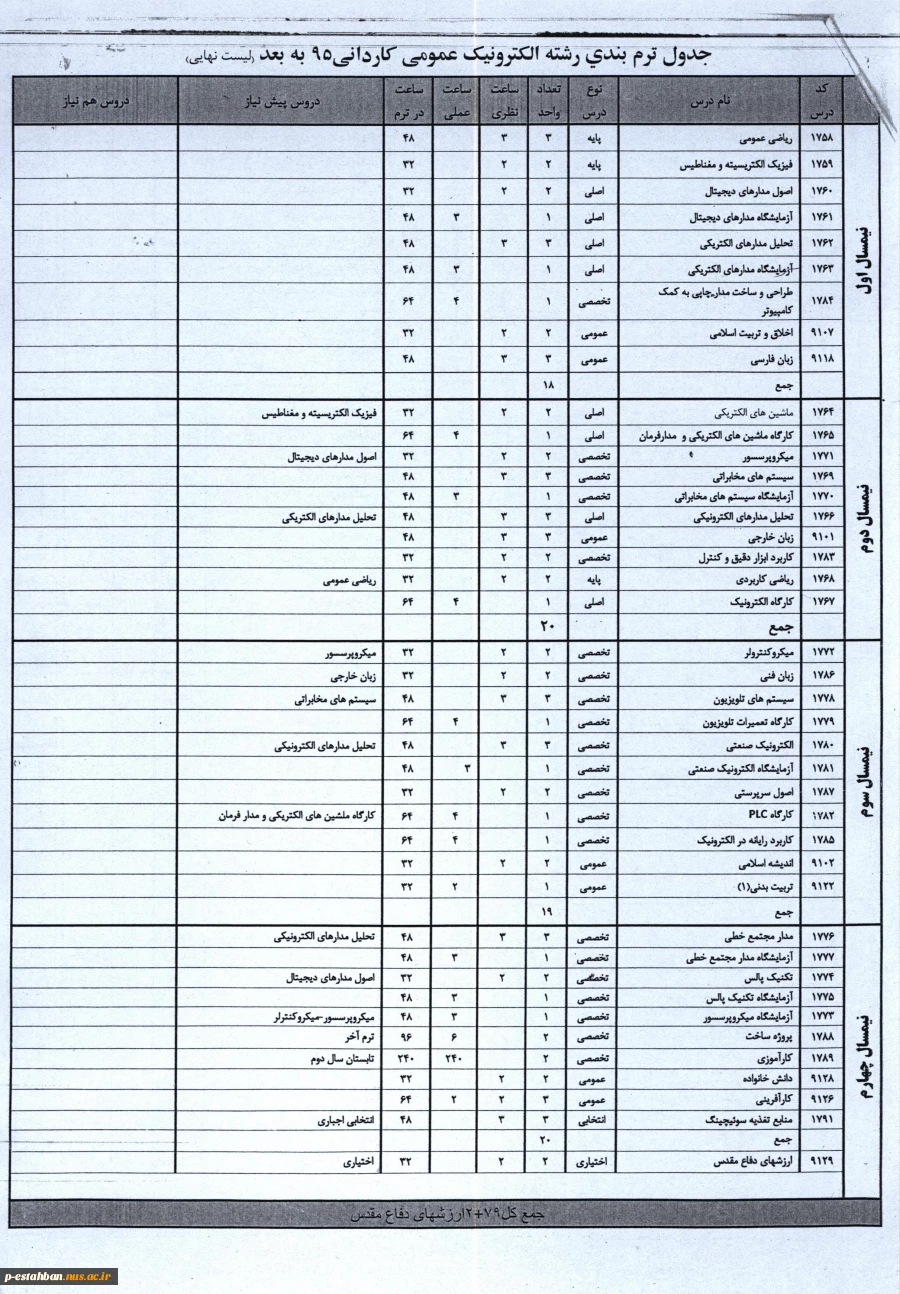 جدول ترم بندي رشته الکترونیک عمومی کاردانی۹۵ به بعد (لیست نهایی)
کد درس نام درس نوع درس تعداد واحد ساعت نظری ساعت عملی ساعت در ترم دروس پیش نیاز دروس هم نیاز
نیمسال اول
۱۷۵۸ ریاضی عمومی پایه ۳ ۳ ۴۸
۱۷۵۹ فیزیک الکتریسیته و مغناطیس پایه ۲ ۲ ۳۲
۱۷۶۰ اصول مدارهای دیجیتال اصلی ۲ ۲ ۳۲
۱۷۶۱ آزمایشگاه مدارهای دیجیتال اصلی ۱ ۳ ۴۸
۱۷۶۲ تحلیل مدارهای الکتریکی اصلی ۳ ۳ ۴۸
۱۷۶۳ آزمایشگاه مدارهای الکتریکی اصلی ۱ ۳ ۴۸
۱۷۸۴ طراحی و ساخت مدارچاپی به کمک کامپیوتر تخصصی ۱ ۴ ۶۴
۹۱۰۷ اخلاق و تربیت اسلامی عمومی ۲ ۲ ۳۲
۹۱۱۸ زبان فارسی عمومی ۳ ۳ ۴۸
جمع ۱۸
نیمسال دوم
۱۷۶۴ ماشین های الکتریکی اصلی ۲ ۲ ۳۲ فیزیک الکتریسیته و مغناطیس
۱۷۶۵ کارگاه ماشین های الکتریکی و مدارفرمان اصلی ۱ ۴ ۶۴
۱۷۷۱ میکروپرسسور تخصصی ۲ ۲ ۳۲ اصول مدارهای دیجیتال
۱۷۶۹ سیستم های مخابراتی تخصصی ۳ ۳ ۴۸
۱۷۷۰ آزمایشگاه سیستم های مخابراتی تخصصی ۱ ۳ ۴۸
۱۷۶۶ تحلیل مدارهای الکترونیکی اصلی ۳ ۳ ۴۸ تحلیل مدارهای الکتریکی
۹۱۰۱ زبان خارجی عمومی ۳ ۳ ۴۸
۱۷۸۳ کاربرد ابزار دقیق و کنترل تخصصی ۲ ۲ ۳۲
۱۷۶۸ ریاضی کاربردی پایه ۲ ۲ ۳۲ ریاضی عمومی
۱۷۶۷ کارگاه الکترونیک اصلی ۱ ۴ ۶۴
جمع ۲۰
نیمسال سوم
۱۷۷۲ میکروکنترولر تخصصی ۲ ۲ ۳۲ میکروپرسسور
۱۷۸۶ زبان فنی تخصصی ۲ ۲ ۳۲ زبان خارجی
۱۷۷۸ سیستم های تلویزیون تخصصی ۳ ۳ ۴۸ سیستم های مخابراتی
۱۷۷۹ کارگاه تعمیرات تلویزیون تخصصی ۱ ۴ ۶۴
۱۷۸۰ الکترونیک صنعتی تخصصی ۳ ۳ ۴۸ تحلیل مدارهای الکترونیکی
۱۷۸۱ آزمایشگاه الکترونیک صنعتی تخصصی ۱ ۳ ۴۸
۱۷۸۷ اصول سرپرستی تخصصی ۲ ۲ ۳۲
۱۷۸۲ کارگاه PLC تخصصی ۱ ۴ ۶۴ کارگاه ملشین های الکتریکی و مدار فرمان
۱۷۸۵ کاربرد رایانه در الکترونیک تخصصی ۱ ۴ ۶۴
۹۱۰۲ اندیشه اسلامی عمومی ۲ ۲ ۳۲
۹۱۲۲ تربیت بدنی(۱) عمومی ۱ ۲ ۳۲
جمع ۱۹
نیمسال چهارم
۱۷۷۶ مدار مجتمع خطی تخصصی ۳ ۳ ۴۸ تحلیل مدارهای الکترونیکی
۱۷۷۷ آزمایشگاه مدار مجتمع خطی تخصصی ۱ ۳ ۴۸
۱۷۷۴ تکنیک پالس تخصصی ۲ ۲ ۳۲ اصول مدارهای دیجیتال
۱۷۷۵ آزمایشگاه تکنیک پالس تخصصی ۱ ۳ ۴۸
۱۷۷۳ آزمایشگاه میکروپرسسور تخصصی ۱ ۳ ۴۸ میکروپرسسور-میکروکنترلر
۱۷۸۸ پروژه ساخت تخصصی ۲ ۶ ۹۶ ترم آخر
۱۷۸۹ کارآموزی تخصصی ۲ ۲۴۰ ۲۴۰ تابستان سال دوم
۹۱۲۸ دانش خانواده عمومی ۲ ۲ ۳۲
۹۱۲۶ کارآفرینی عمومی ۳ ۲ ۲ ۶۴
۱۷۹۱ منابع تغذیه سوئیچینگ انتخابی ۳ ۳ ۴۸ انتخابی اجباری
جمع ۲۰
۹۱۲۹ ارزشهای دفاع مقدس اختیاری ۲ ۲ ۳۲ اختیاری
جمع کل۷۹+۲ارزشهای دفاع مقدس
p-estahban.nus.ac.ir